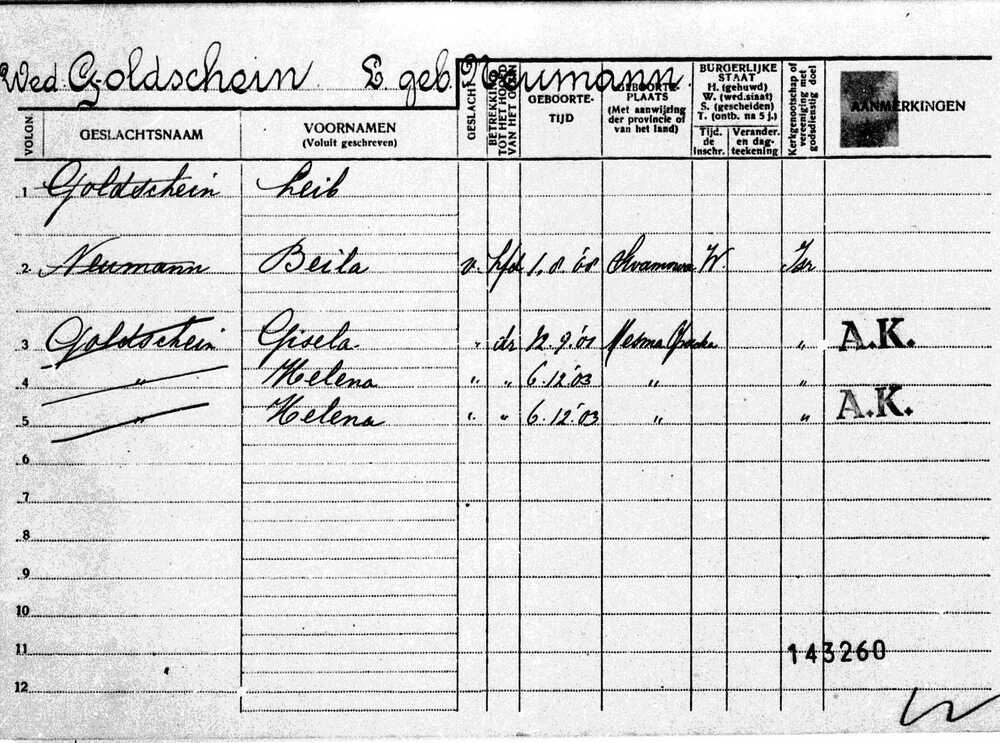 Wed. Goldschein L. geb. Neumann
VOLGN. GESLACHTSNAAM VOORNAMEN (Voluit geschreven) GESLACHT BETREKKING TOT HET HOOFD VAN HET GEZIN GEBOORTE-TIJD GEBOORTE-PLAATS (Met aanwijzing der provincie of van het land) BURGERLIJKE STAAT H. (gehuwd) W. (wed.staat) S. (gescheiden) T. (ontb. na 5 j.) Tijd. de inschr. Verander. en dag-teekening Kerkgenootschap of vereeniging met godsdienstig doel AANMERKINGEN
1 Goldschein Leib
2. Neumann Beila v. hfd 1.8.'68 W. Isr
3 Goldschein Gisela " dr 12.9.'01 " A.K.
4 " Helena " " 6.12.'03 " "
5 " Helena " " 6.12.'03 " " A.K.
6
7
8
9
10
11 143260
12